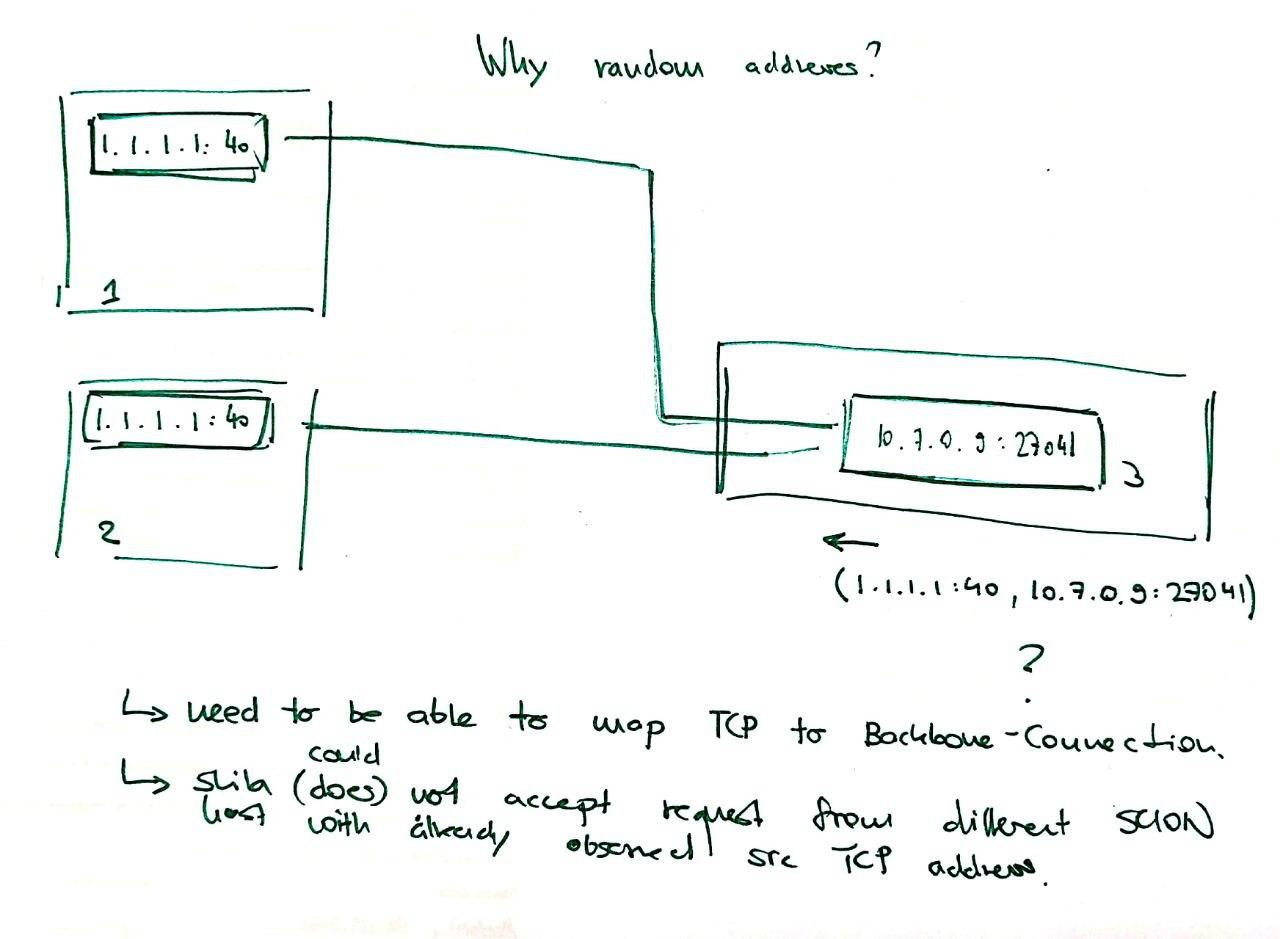 Why random addresses?
1.1.1.1:40
1
1.1.1.1:40
2
10.7.0.9:27041
3
←
(1.1.1.1:40, 10.7.0.9:27041)
?
↳ need to be able to map TCP to Backbone-Connection.
could
↳ (does) not accept request from different SCION
host with already observed src TCP address.